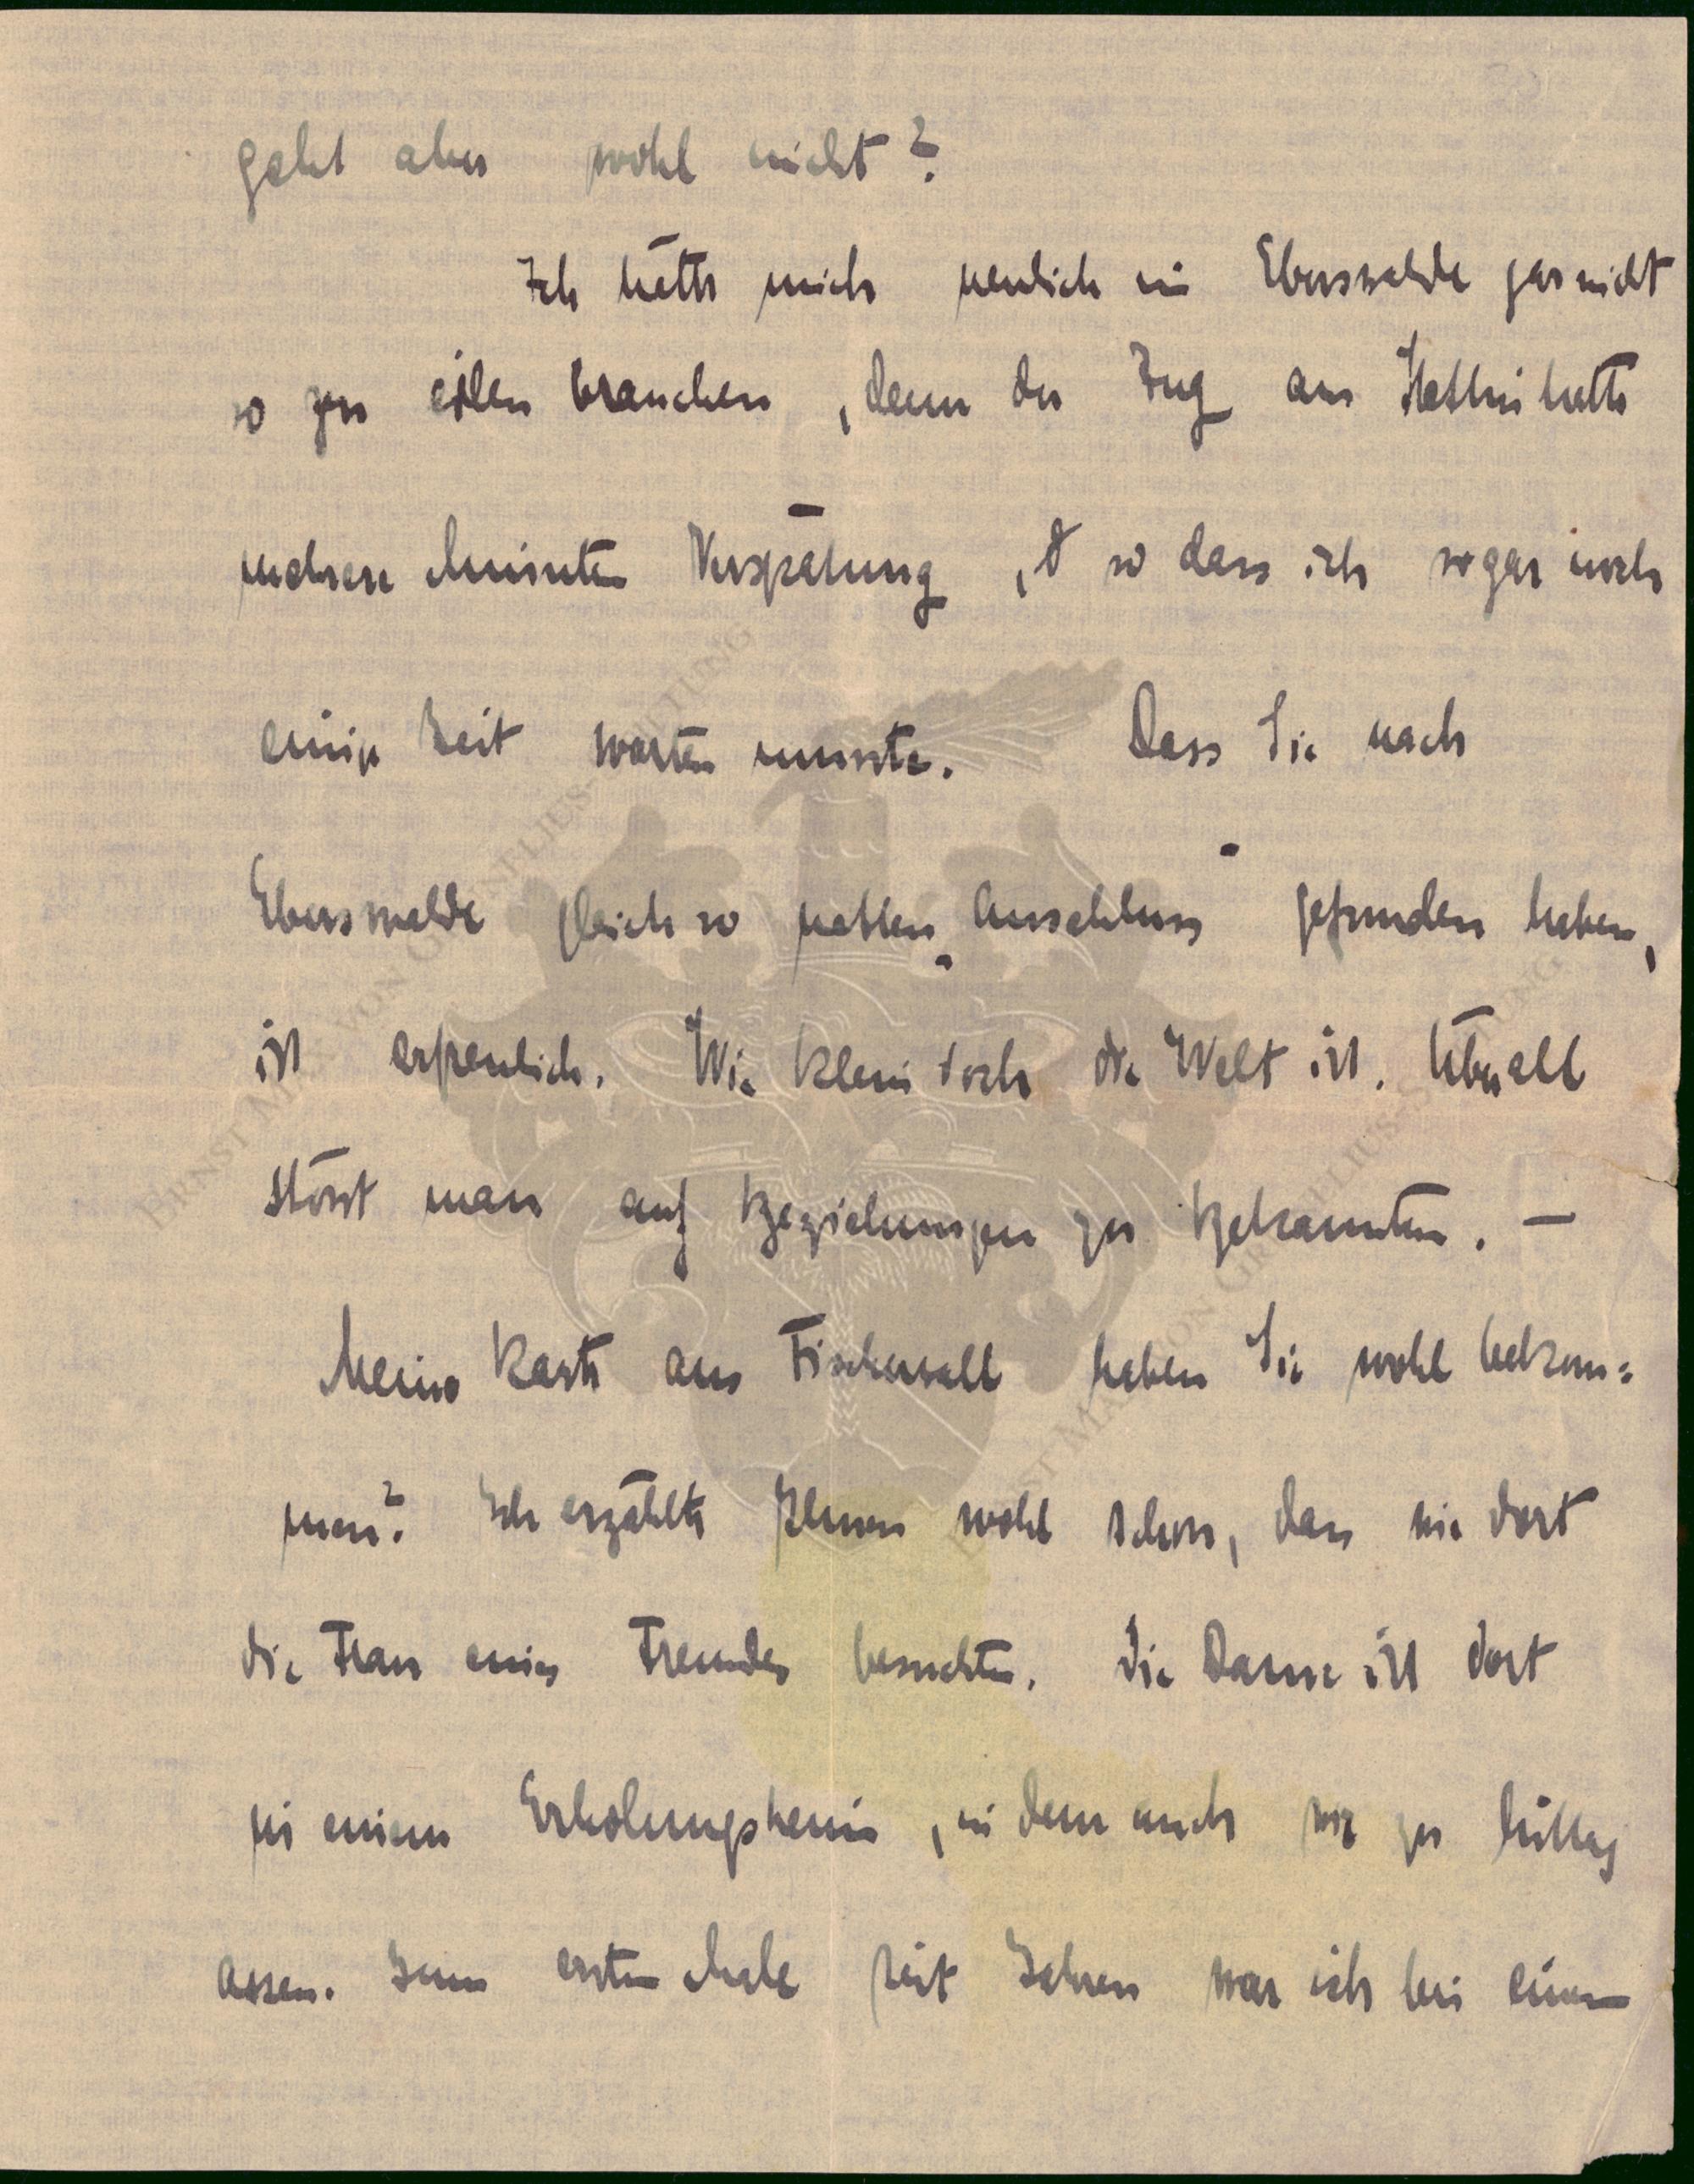 geht aber wohl nicht?
Ich hätte mich neulich in Eberswalde gar nicht
so zu eilen brauchen, denn der Zug aus Stettin hatte
mehrere Minuten Verspätung, so dass ich sogar noch
einige Zeit warten musste. Dass Sie nach
Eberswalde gleich so netten „Anschluss" gefunden haben,
ist erfreulich. Wie klein doch die Welt ist. Überall
stösst man auf Beziehungen zu Bekannten. —
Meine Karte aus Fischerwall haben Sie wohl bekom=
men? Ich erzählte Ihnen wohl schon, dass wir dort
die Frau eines Freundes besuchten. Die Dame ist dort
in einem Erholungsheim, in dem auch wir zu Mittag
assen. Zum ersten Male seit Jahren war ich bei einem
ERNST MAX VON GRUNELIUS-STIFTUNG
ERNST MAX VON GRUNELIUS-STIFTUNG